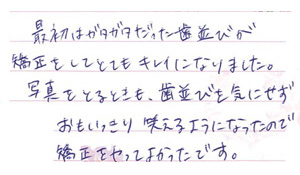 最初はガタガタだった歯並びが
矯正をしてとてもキレイになりました。
写真をとるときも、歯並びを気にせず
おもいっきり笑えるようになったので
矯正をやってよかったです。